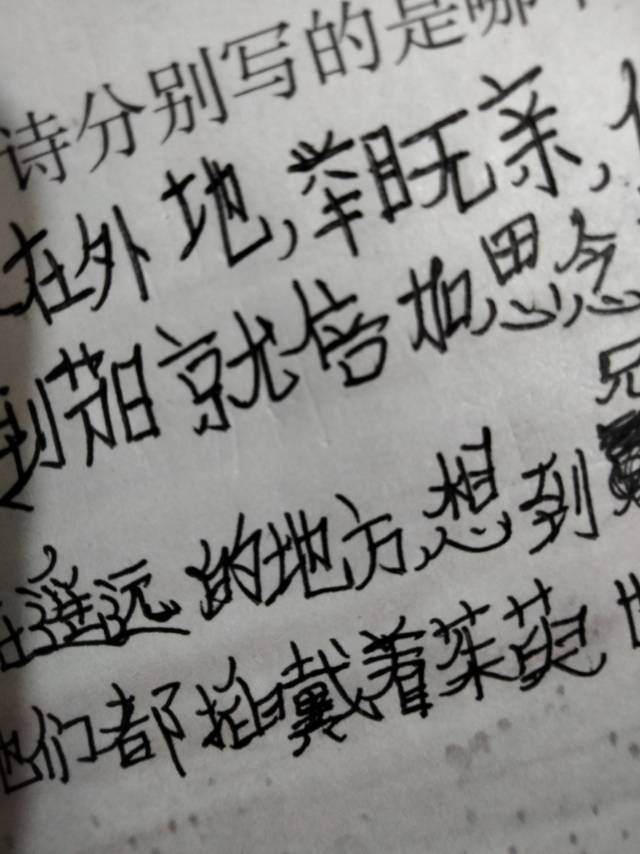 诗分别写的是哪
在外地,举目无亲,
到节日就倍加思念
兄
在遥远的地方,想到
他们都插戴着茱萸